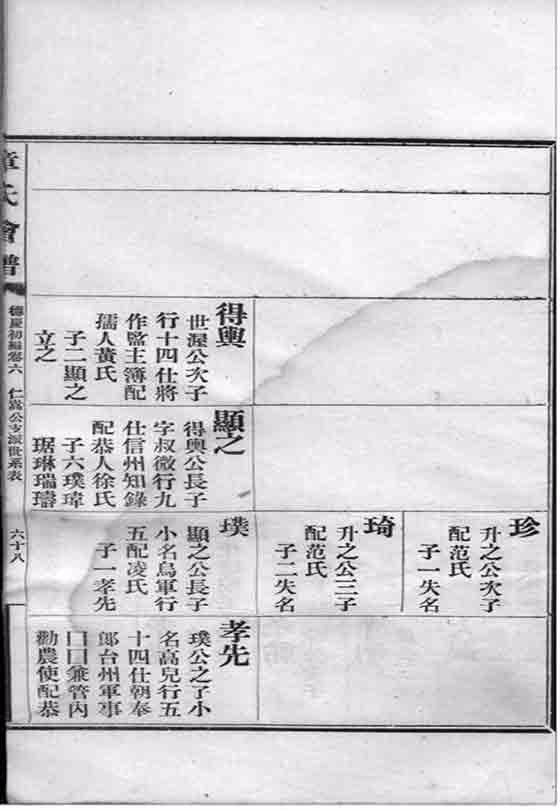 得輿
世渥公次子
行十四仕將
作監主簿配
孺人黃氏
子二顯之
立之
顯之
得輿公長子
字叔微行九
仕信州知錄
配恭人徐氏
子六璞瑋
琚琳瑞璹
珍
升之公次子
配范氏
子一失名
琦
升之公三子
配范氏
子二失名
璞
顯之公長子
小名烏軍行
五配凌氏
子一孝先
孝先
璞公之子小
名高兒行五
十四仕朝奉
郎台州軍事
囗囗兼管內
勸農使配恭
章氏會譜
德慶初編卷六
仁嵩公支派世系表
六十八